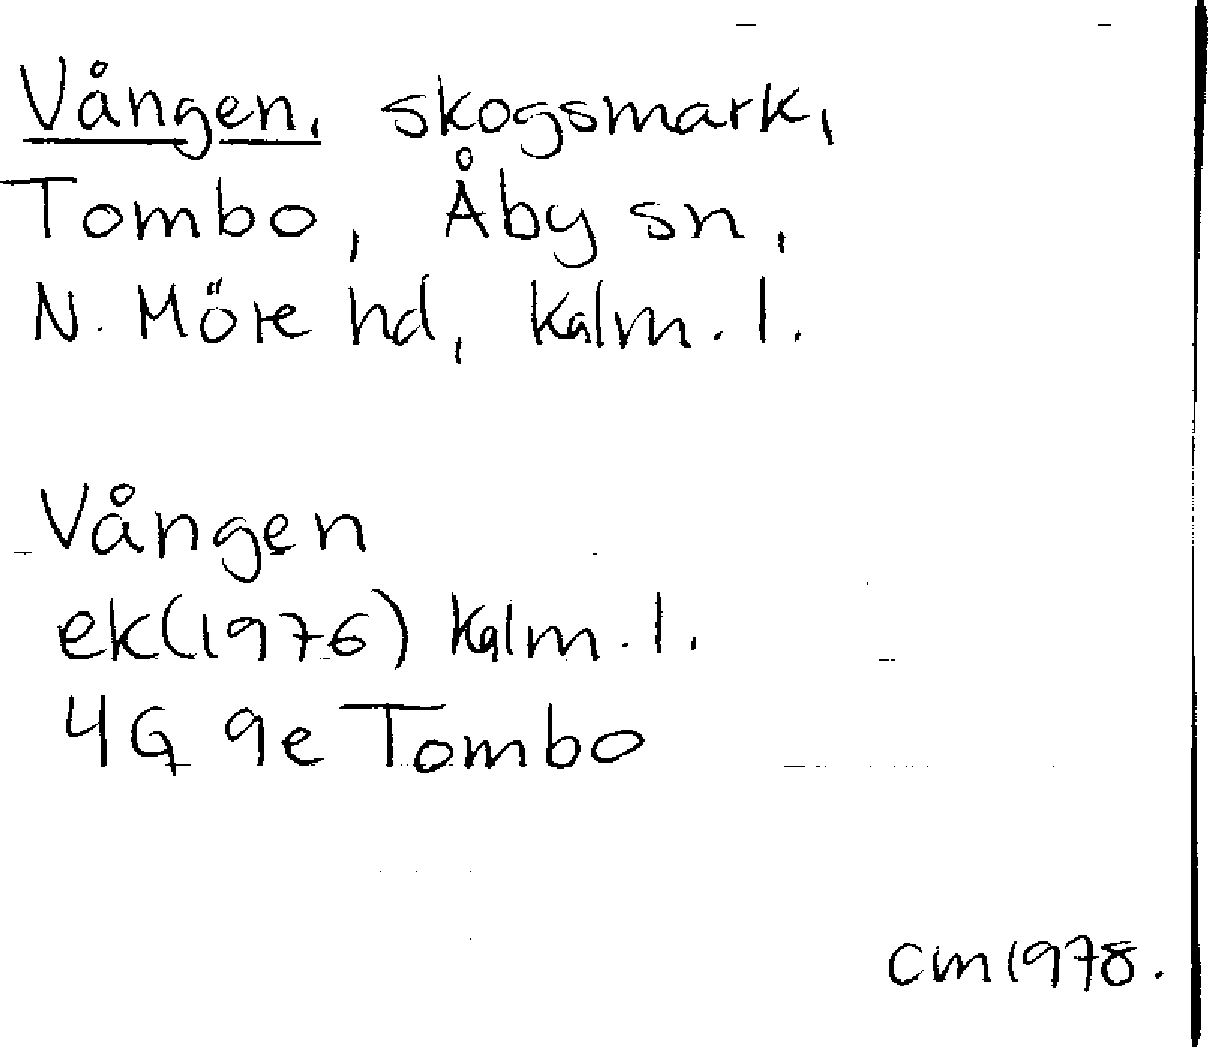 Vången, skogsmark,
Tombo, Åby sn,
N. Möre hd, Kalm. l.
Vången
ek(1976) Kalm. l.
4G 9e Tombo
CM 1978.